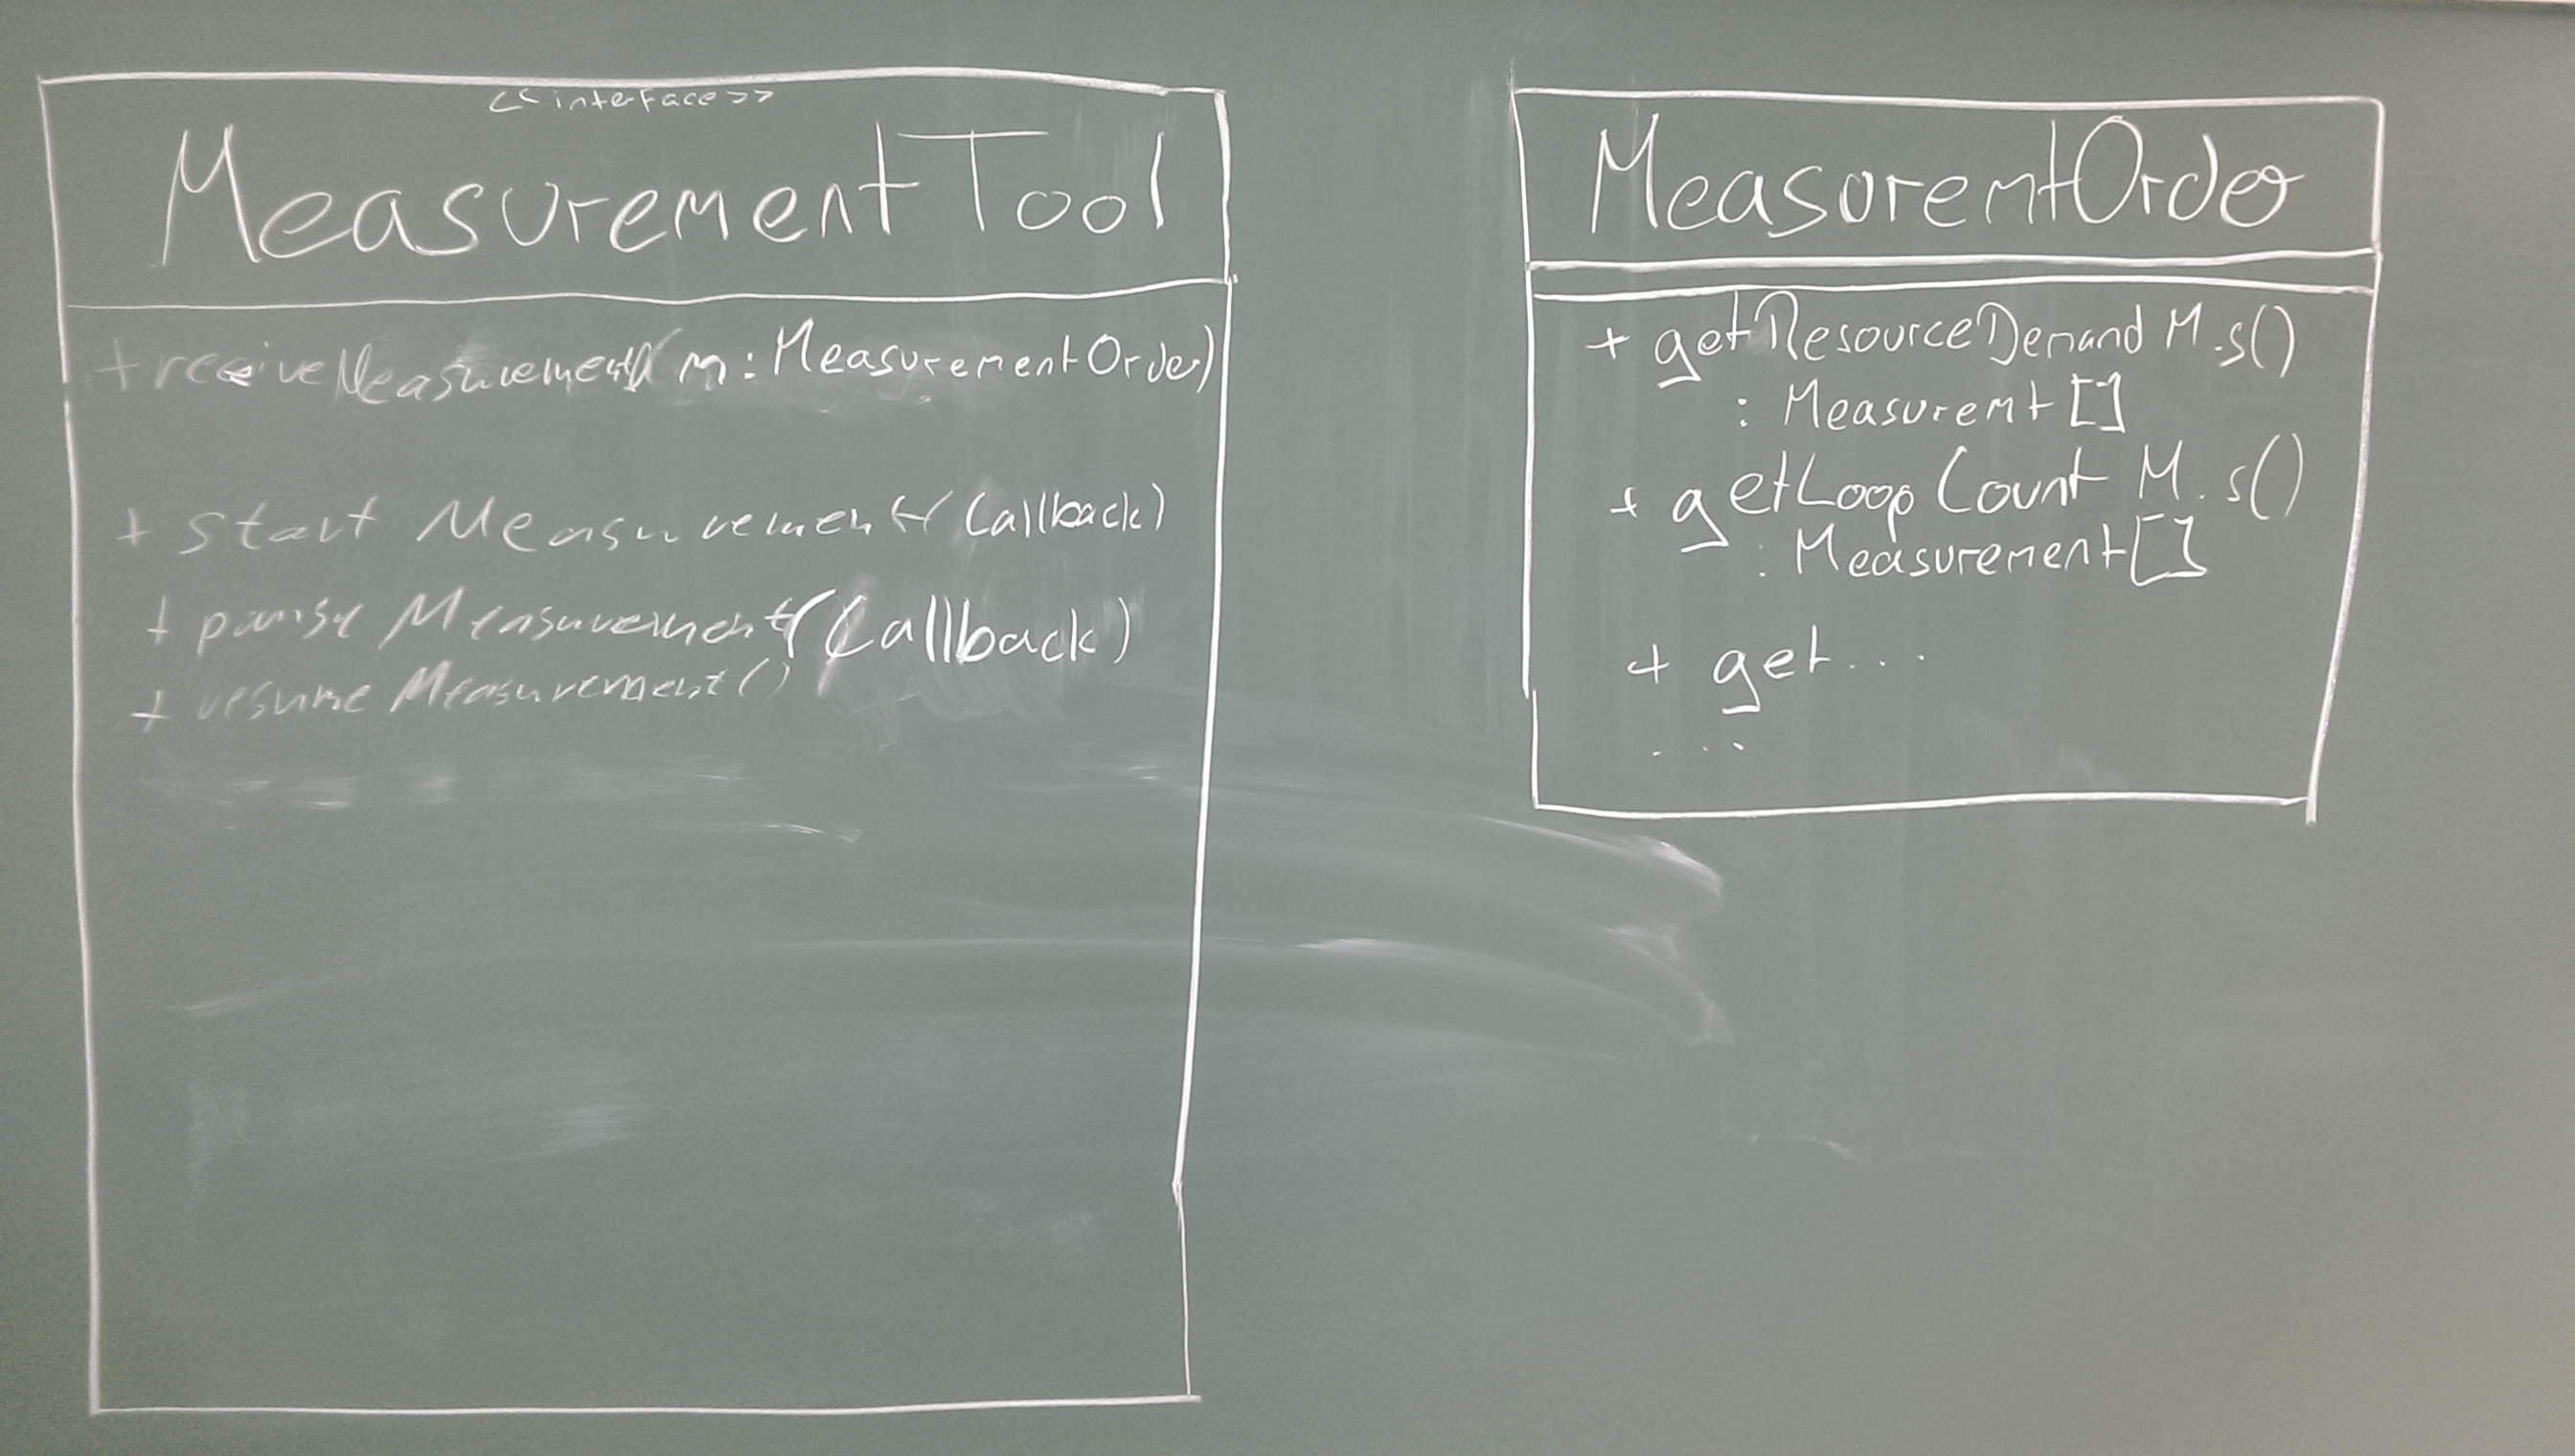 <<interface>>
MeasurementTool
+receiveMeasurement(m:MeasurementOrder)
+ start Measurement(Callback)
+ pause Measurement(Callback)
+ resume Measurement()
MeasurentOrder
+ getResourceDemand M.s()
: Measuremt[]
+ getLoopCount M.s()
: Measurement[]
+ get...
...